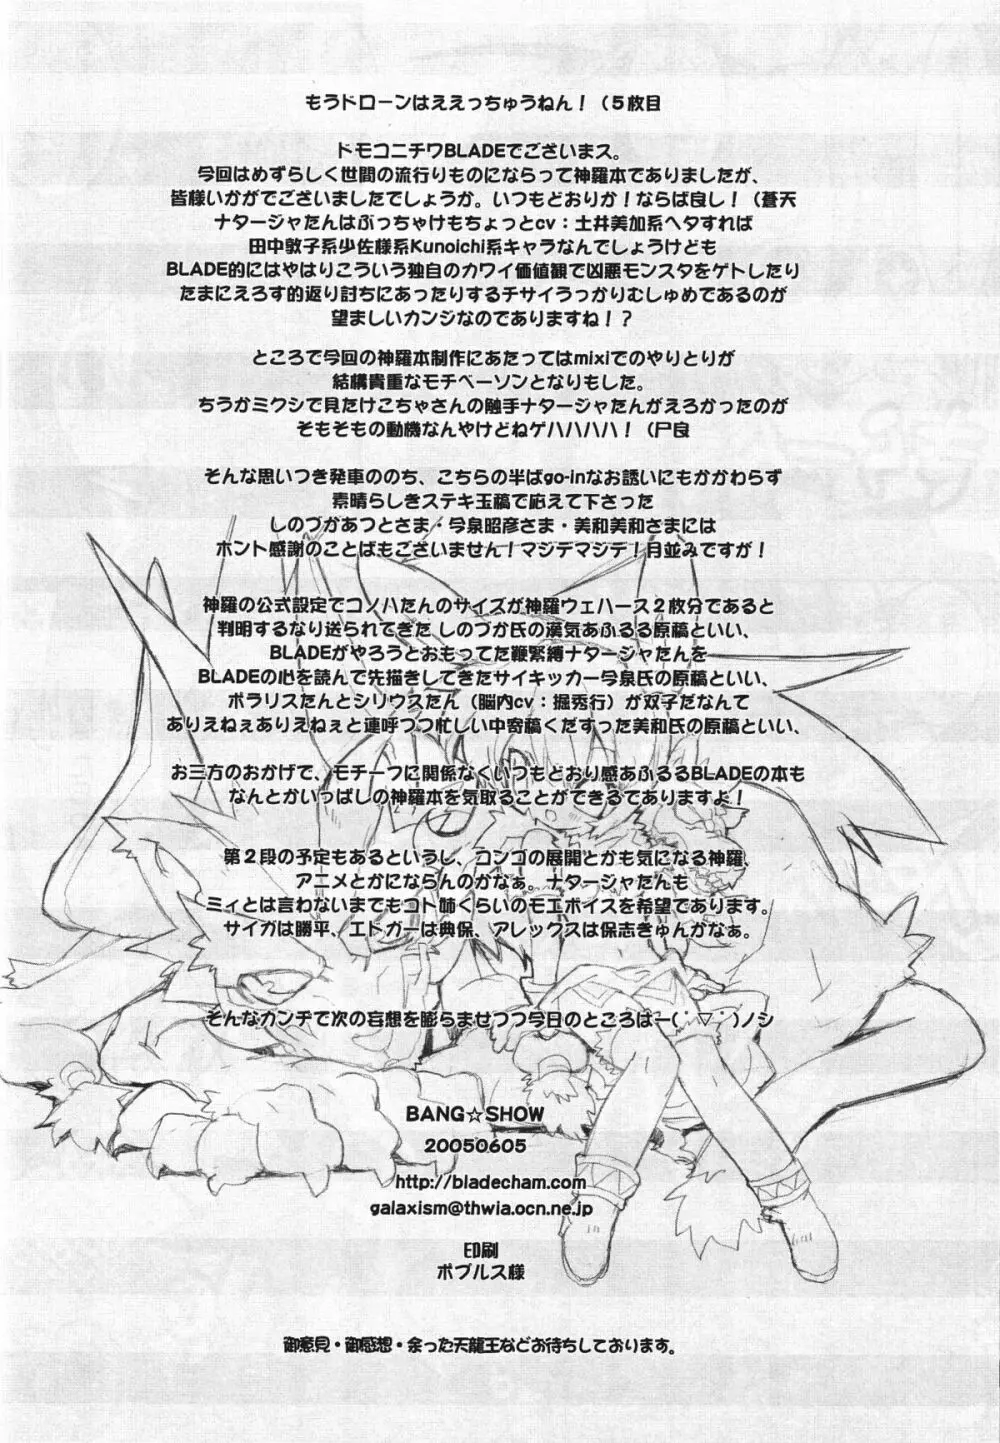 もうドローンはええっちゅうねん！（５枚目
ドモコニチワBLADEでございまス。
今回はめずらしく世間の流行りものにならって神羅本でありましたが、
皆様いかがでございましたでしょうか。いつもどおりか！ならば良し！（蒼天
ナタージャたんはぶっちゃけもちょっとcv：土井美加系ヘタすれば
田中敦子系少佐様系Kunoichi系キャラなんでしょうけども
BLADE的にはやはりこういう独自のカワイ価値観で凶悪モンスタをゲトしたり
たまにえろす的返り討ちにあったりするチサイうっかりむしゅめであるのが
望ましいカンジなのでありますね！？
ところで今回の神羅本制作にあたってはmixiでのやりとりが
結構貴重なモチベーソンとなりもした。
ちうかミクシで見たけこちゃさんの触手ナタージャたんがえろかったのが
そもそもの動機なんやけどねゲハハハハ！（尸良
そんな思いつき発車ののち、こちらの半ばgo-inなお誘いにもかかわらず
素晴らしきステキ玉稿で応えて下さった
しのづかあつとさま・今泉昭彦さま・美和美和さまには
ホント感謝のことばもございません！マシデマシデ！月並みですが！
神羅の公式設定でコノハたんのサイズが神羅ウェハース２枚分であると
判明するなり送られてきた しのづか氏の漢気あふるる原稿といい、
BLADEがやろうとおもってた鞭緊縛ナタージャたんを
BLADEの心を読んで先描きしてきたサイキッカー今泉氏の原稿といい、
ポラリスたんとシリウスたん（脳内cv：堀秀行）が双子だなんて
ありえねぇありえねぇと連呼つつ忙しい中寄稿くだすった美和氏の原稿といい、
お三方のおかげで、モチーフに関係なくいつもどおり感あふるるBLADEの本も
なんとかいっぱしの神羅本を気取ることができるでありますよ！
第２段の予定もあるというし、コンゴの展開とかも気になる神羅、
アニメとかにならんのかなぁ。ナタージャたんも
ミィとは言わないまでもコト姉くらいのモエボイスを希望であります。
サイガは勝平、エドガーは典保、アレックスは保志きゅんがなぁ。
そんなカンチで次の妄想を膨らませつつ今日のところはー(゜▽゜)ノシ
BANG☆SHOW
20050605
http://bladecham.com
galaxism@thwia.ocn.ne.jp
印刷
ポプルス様
御意見・御感想・余った天龍王などお待ちしております。